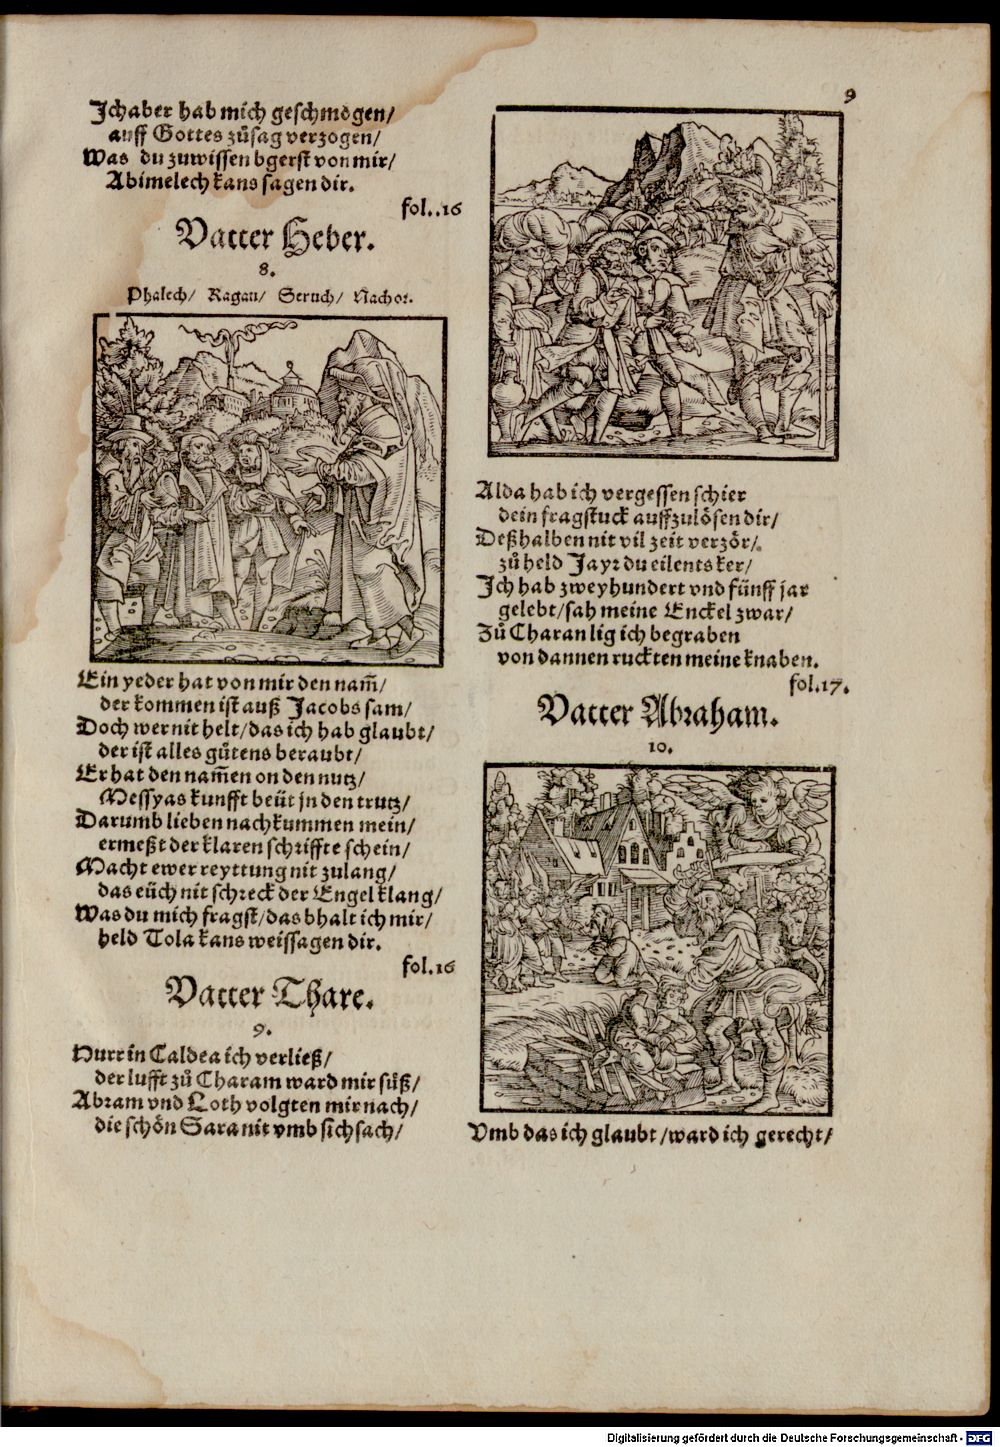 9
Ich aber hab mich geschmogen/
auff Gottes zůsag verzogen/
Was du zuwissen bgerst von mir/
Abimelech kans sagen dir.
fol..16
Vatter Heber.
8.
Phalech/ Ragau/ Seruch/ Nachor.
Ein yeder hat von mir den nam̄/
der kommen ist auß Jacobs sam/
Doch wer nit helt/das ich hab glaubt/
der ist alles gůtens beraubt/
Er hat den nam̄en on den nutz/
Messyas kunfft beüt jn den trutz/
Darumb lieben nachkummen mein/
ermeßt der klaren schriffte schein/
Macht ewer reyttung nit zulang/
das eüch nit schreck der Engel klang/
Was du mich fragst/das bhalt ich mir/
held Tola kans weissagen dir.
fol.16
Vatter Thare.
9.
Hurr in Caldea ich verließ/
der lufft zů Charam ward mir süß/
Abram vnd Loth volgten mir nach/
die schön Sara nit vmb sich sach/
Alda hab ich vergessen schier
dein fragstuck auffzulösen dir/
Deßhalben nit vil zeit verzör/
zů held Jayr du eilents ker/
Ich hab zweyhundert vnd fünff jar
gelebt/sah meine Enckel zwar/
Zů Charan lig ich begraben
von dannen ruckten meine knaben.
fol.17.
Vatter Abraham.
10.
Vmb das ich glaubt/ward ich gerecht/
Digitalisierung gefördert durch die Deutsche Forschungsgemeinschaft - DFG